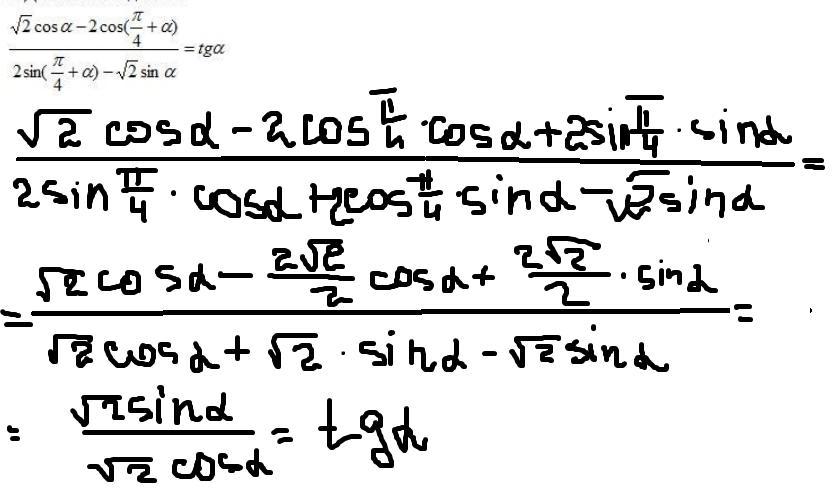 (√2 cos α − 2 cos(π/4 + α)) / (2 sin(π/4 + α) − √2 sin α) = tgα
(√2 cosα − 2cos π/4 · cosα + 2sin π/4 · sinα) / (2sin π/4 · cosα + 2cos π/4 · sinα − √2 sinα) =
= (√2 cosα − 2√2/2 cosα + 2√2/2 · sinα) / (√2 cosα + √2 · sinα − √2 sinα) =
= √2 sinα / √2 cosα = tgα